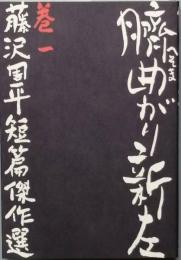 臍曲がり新左
へそま
藤沢周平短篇傑作選
巻一